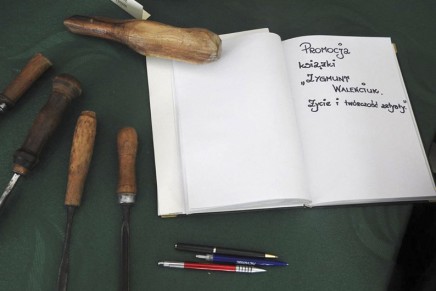 Promocja
książki
„Zygmunt
Waleńciuk.
Życie i twórczość artysty"